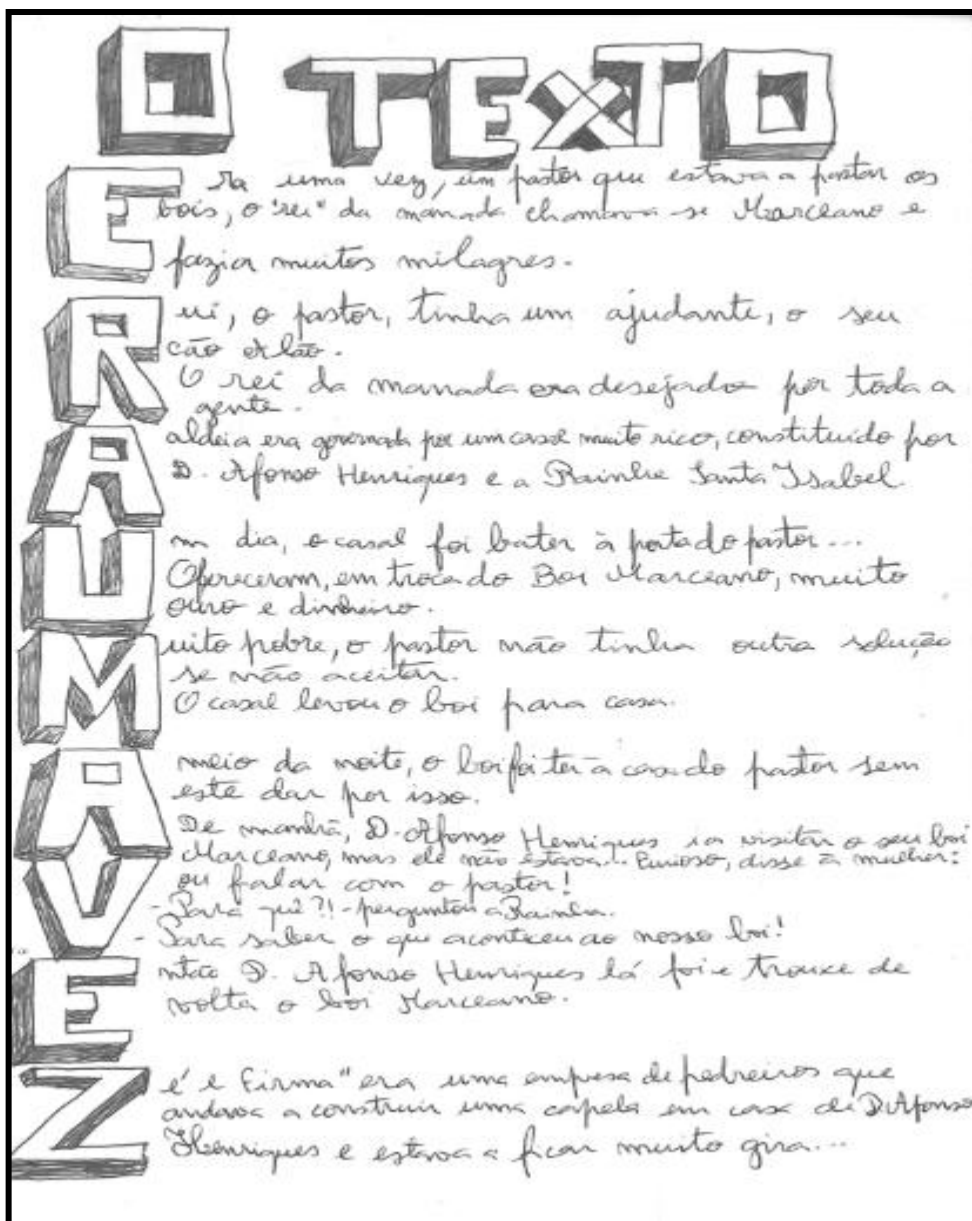 O TEXTO
Era uma vez, um pastor que estava a pastar os
bois, o "rei" da manada chamava-se Marceano e
fazia muitos milagres.
Rui, o pastor, tinha um ajudante, o seu
cão Alão.
O rei da manada era desejado por toda a
gente.
A aldeia era governada por um casal muito rico, constituído por
D. Afonso Henriques e a Rainha Santa Isabel.
Um dia, o casal foi bater à porta do pastor...
Ofereceram, em troca do Boi Marceano, muito
ouro e dinheiro.
Muito pobre, o pastor não tinha outra solução
se não aceitar.
O casal levou o boi para casa.
A meio da noite, o boi foi ter à casa do pastor sem
este dar por isso.
De manhã, D. Afonso Henriques ia visitar o seu boi
Marceano, mas ele não estava... Curioso, disse à mulher:
Vou falar com o pastor!
- Para quê?! - perguntou a Rainha.
- Para saber o que aconteceu ao nosso boi!
Então D. Afonso Henriques lá foi e trouxe de
volta o boi Marceano.
Zé e Firma" era uma empresa de pedreiros que
andava a construir uma capela em casa de D. Afonso
Henriques e estava a ficar muito gira...